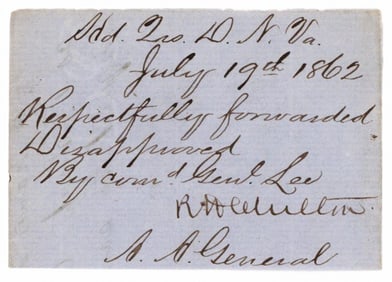 Hd Qrs. D. N. Va.
July 19th 1862
Respectfully forwarded
Disapproved
By comd Genl. Lee
R H Chilton
A. A. General